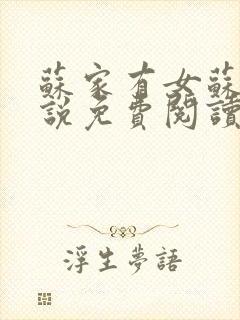 蘇家有女蘇
說免費閱讀
浮生夢語